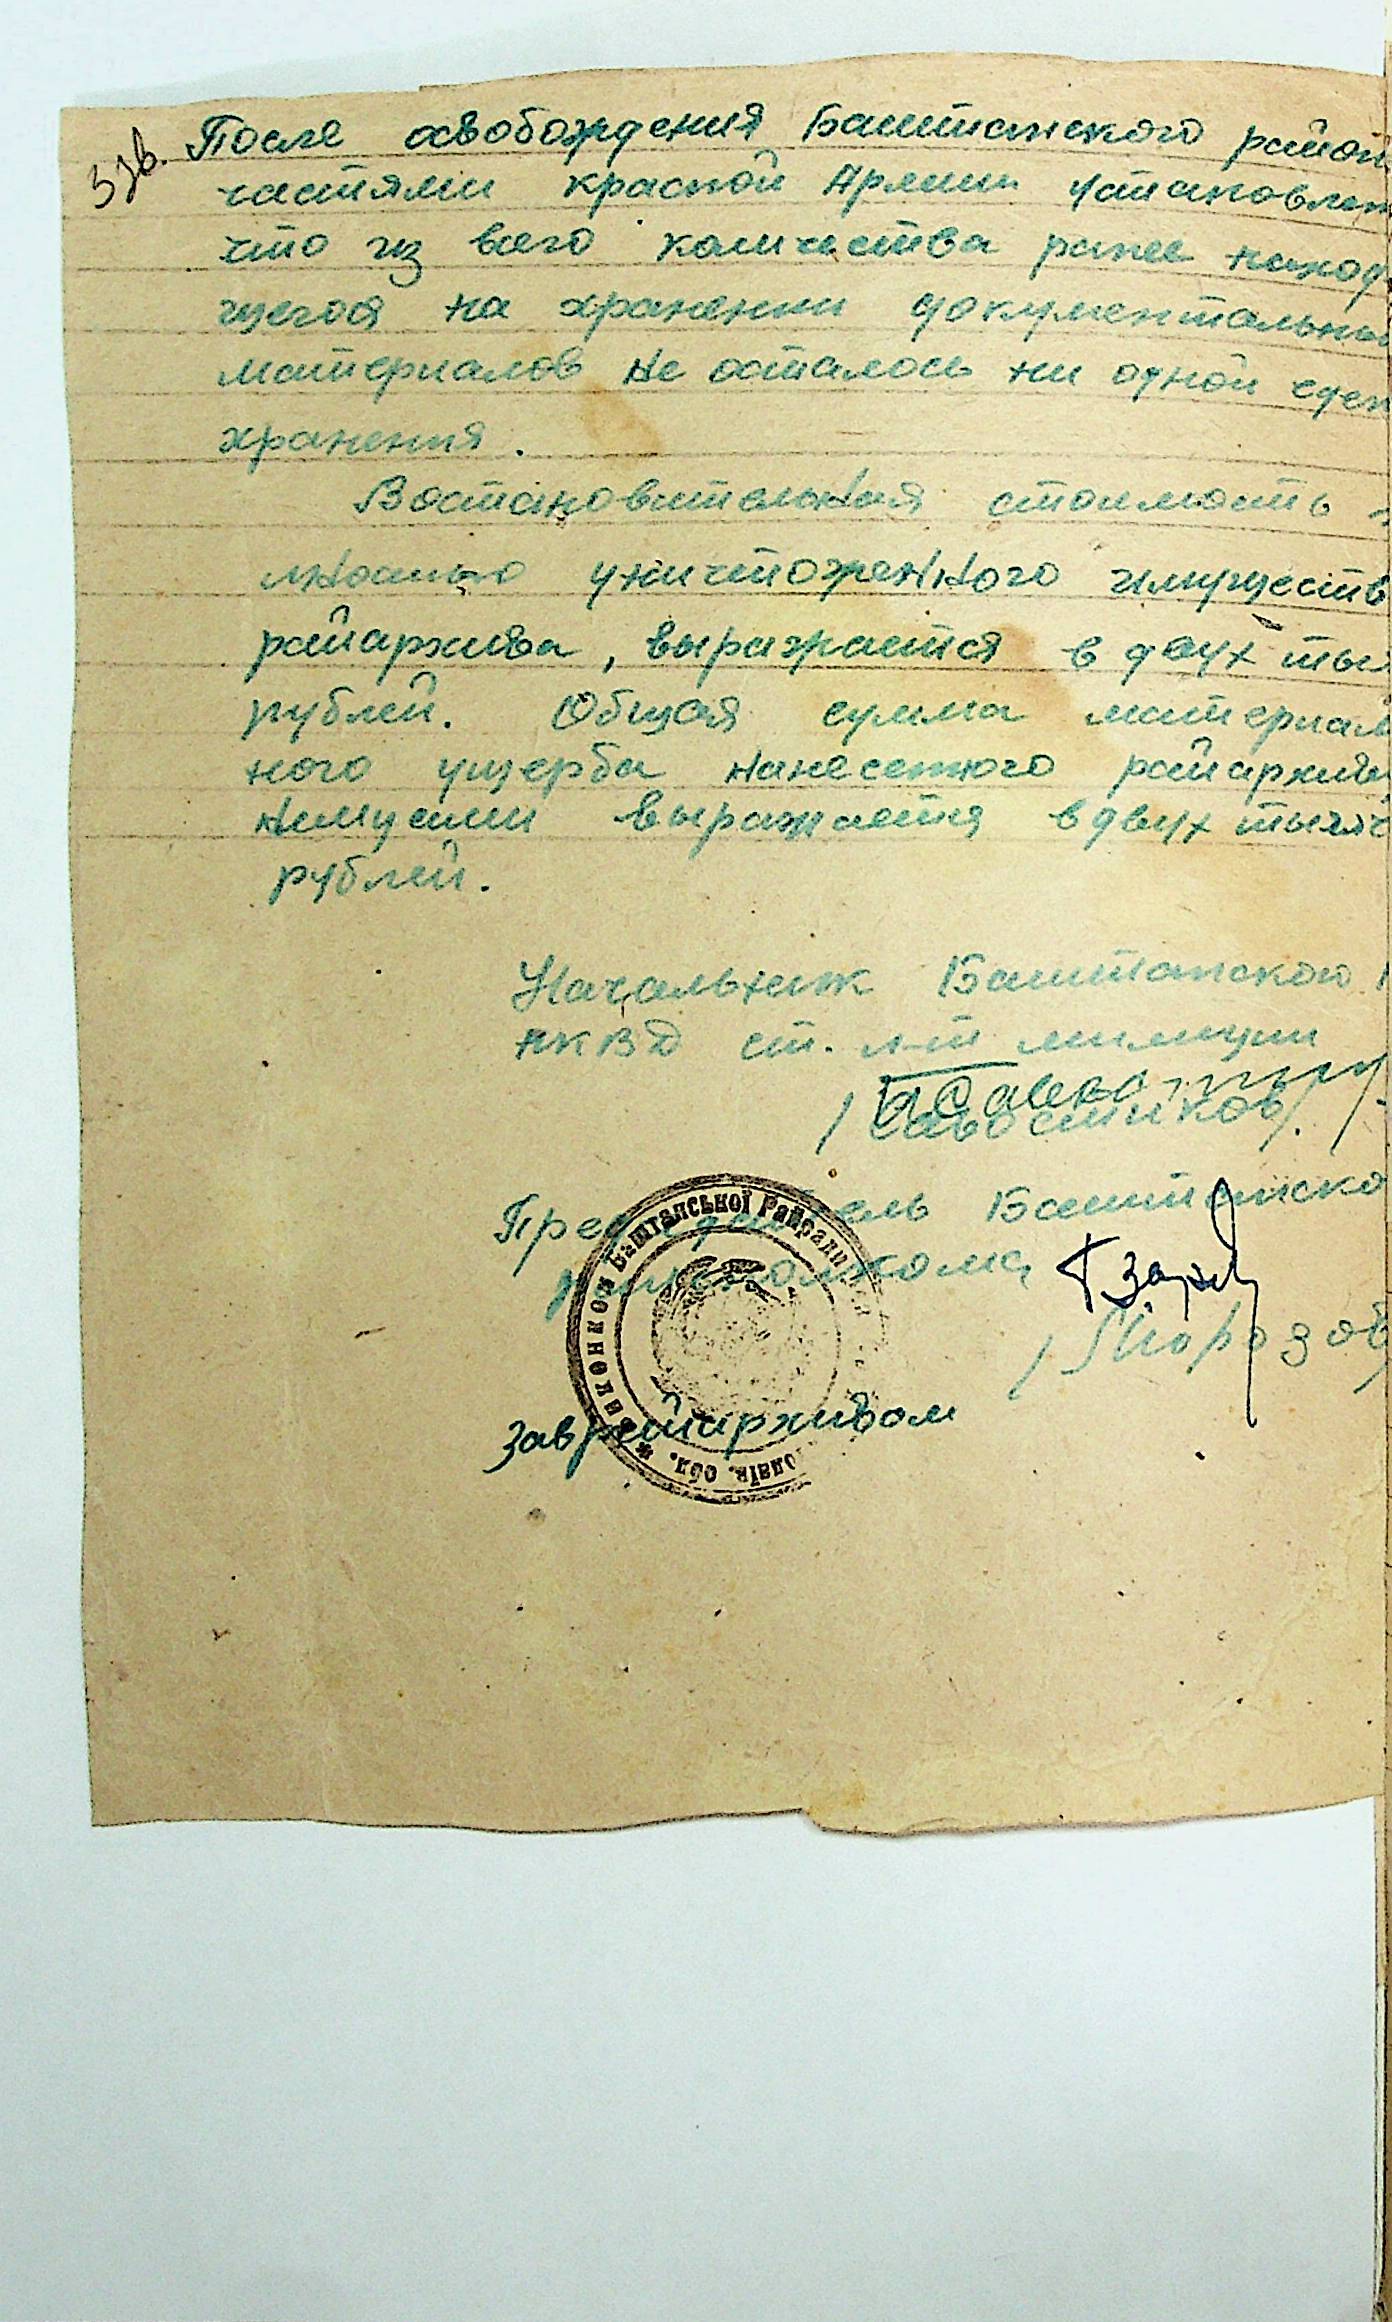 33в.
После освобождения Баштанского район
частями красной Армии установлен
что из всего количества ранее наход
щегося на хранении документальны
материалов не осталось ни одной един
хранения.
Востановительная стоимость
лностью уничтоженного имуществ
райархива, выражается в двух тыс
рублей. Общая сумма материал
ного ущерба нанесенного райархив
немцами выражается в двух тысяч
рублей.
Начальник Баштанского
НКВД ст. л-т милиции
/ Савостиков /
Председатель Баштанско
райисполкома
/ Морозов
Завրайархивом
Виконком Баштанської Райради
обл.